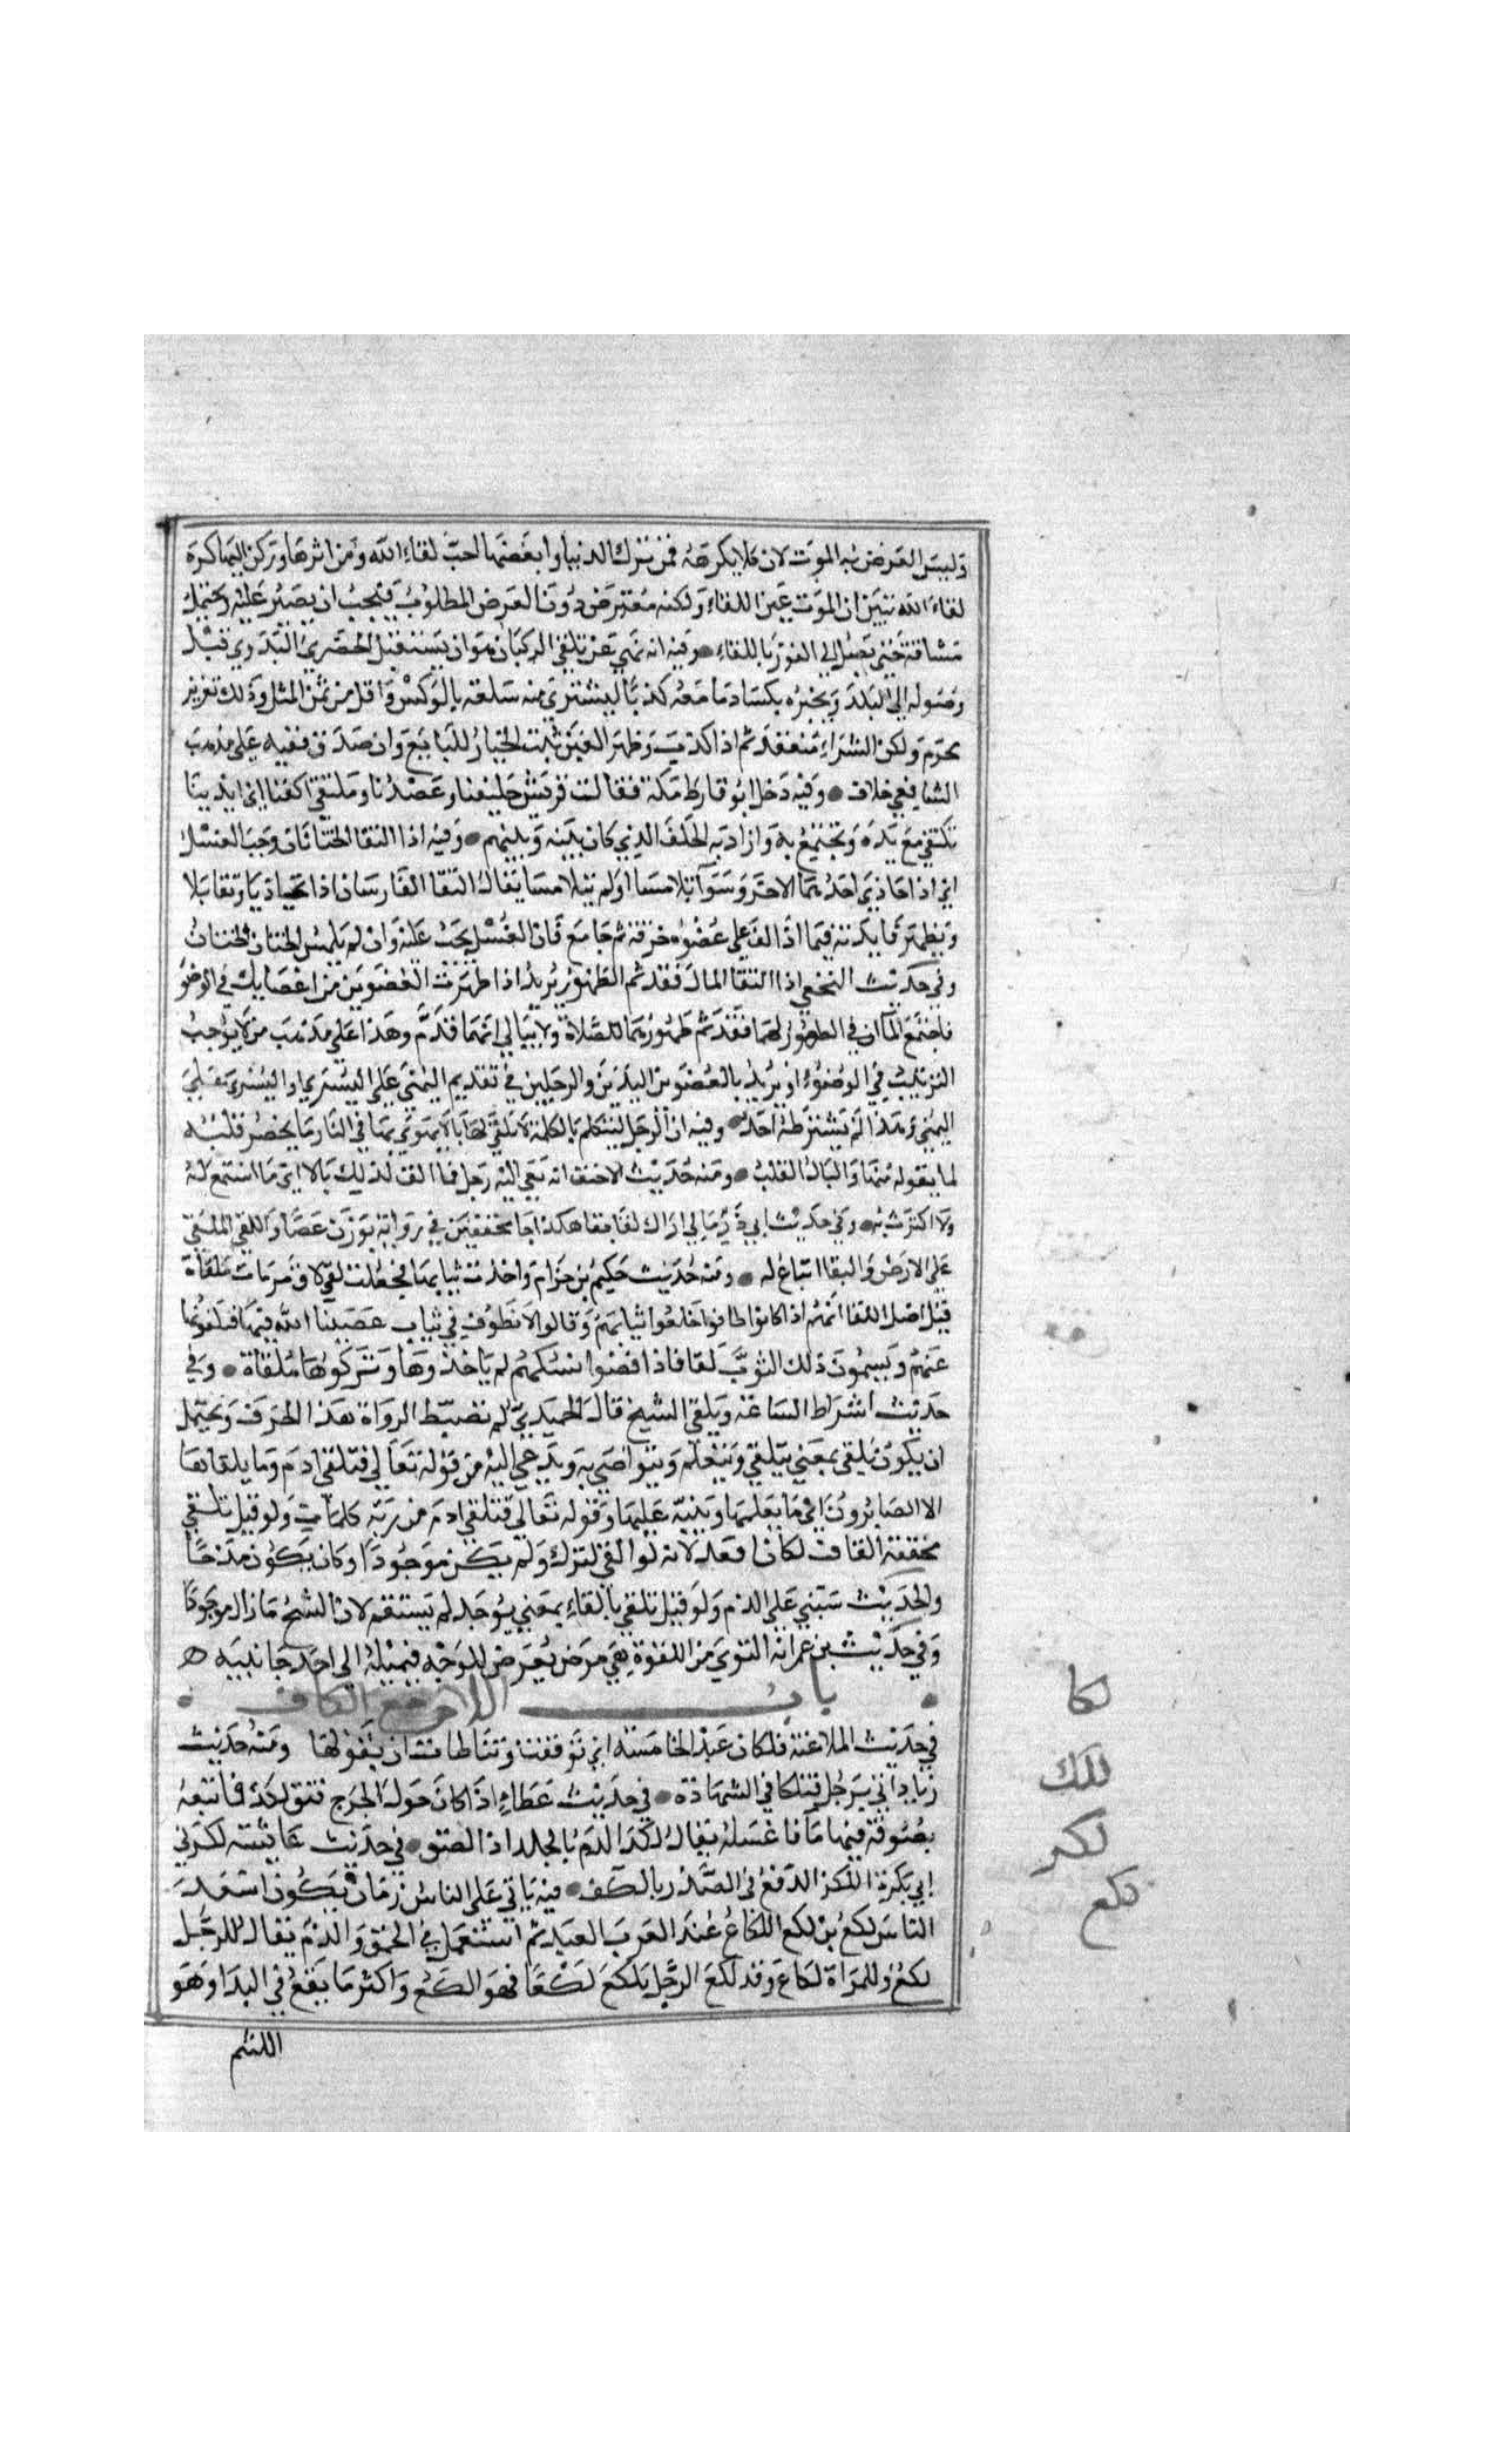 وليس الغرض به الموت لان كلا يكرهه فمن ترك الدنيا وابغضها احب لقاء الله ومن اثرها وركن اليها كره
لقاء الله تبين ان الموت غير اللقاء ولكنه معترض دون الغرض المطلوب فيجب ان يصبر عليه ويحتمل
مشاقه حتى يصل الى الفوز باللقاء • وفيه انه نهى عن تلقي الركبان هو ان يستقبل الحضري البدوي قبل
وصوله الى البلد ويخبره بكساد ما معه كذبا ليشتري منه سلعته بالوكس واقل من ثمن المثل وذلك تغرير
محرم ولكن الشراء منعقد ثم اذا كذب وظهر الغبن ثبت الخيار للبايع وان صدق ففيه على مذهب
الشافعي خلاف • وفيه دخل ابو قارظ مكة فقالت قريش حليفنا وعضدنا وملتقى اكفنا اي ايدينا
تلتقي مع يده وتجتمع به واراد به الحلف الذي كان بينه وبينهم • وفيه اذا التقا الختانان وجب الغسل
اي اذا حاذى احدهما الاخر وسوآ تلامسا او لم يتلامسا يقال التقا الفارسان اذا تحاذيا وتقابلا
وتظهر فايدته فيما اذا لف على عضوه خرقة ثم جامع فان الغسل يجب عليه وان لم يلمس الختان الختان
وفي حديث النخعي اذا التقا المآ فقد تم الطهور يريد اذا طهرت العضوين من اعضايك في الوضو
فاجتمع المآان في الطهور لهما فقد تم طهورهما للصلاة ولا يبالي ايهما قدم وهذا على مذهب من لا يوجب
الترتيب في الوضوء او يريد بالعضوين اليدين والرجلين في تقديم اليمنى على اليسرى او اليسرى على
اليمنى وهذا لم يشترطه احد • وفيه ان الرجل ليتكلم بالكلمة لا يلقي لها بالا يهوي بها في النار ما يحضر قلبه
لما يقوله منها والبال القلب • ومنه حديث الاحنف انه نعي اليه رجل فما القى لذلك بالا اي ما استمع له
ولا اكترث به • وفي حديث ابي ذر ما لي اراك لقا بقا هكذا جا مخففين في رواية بوزن عصا واللقي الملقى
على الارض والبقا اتباع له • ومنه حديث حكيم بن حزام واخذت ثيابها فجعلت لقى اي مرمات ملقاة
قيل اصل اللقا انهم اذا كانوا طافوا خلعوا ثيابهم وقالوا لا نطوف في ثياب عصينا الله فيها فيلقونها
عنهم ويسمون ذلك الثوب لقا فاذا قضوا نسكهم لم ياخذوها وتركوها ملقاة • وفي
حديث اشراط الساعة ويلقى الشيخ قال الحميدي لم تضبط الرواة هذا الحرف ويحتمل
ان يكون يلقى بمعنى يتلقى ويتعلم ويتواصى به ويدعى اليه من قوله تعالى فتلقى ادم وما يلقاها
الا الصابرون اي ما يعلمها وينبه عليها وقوله تعالى فتلقى ادم من ربه كلمات ولو قيل تلقى
مخففة القاف لكان ابعد لانه لو القي لترك ولم يكن موجودا وكان يكون مدحا
والحديث مبني على الذم ولو قيل تلفي بالفاء بمعنى يوجد لم يستقم لان الشح مازال موجودا
وفي حديث بن عمر انه اكتوى من اللقوة هي مرض يعرض للوجه فيميله الى احد جانبيه ه
• باب اللام مع الكاف •
في حديث الملاعنة فلكان عند الخامسة اي توقفت وتباطات ان تقولها ومنه حديث
زياد اتي برجل فتلكا في الشهادة • في حديث عطاء اذا كان حول الجرح قيح ولكد فاتبعه
بصوفة فيها مآ فاغسله يقال لكد الدم بالجلد اذا لصق • في حديث عايشة لكزني
ابي بكرة اللكز الدفع في الصدر بالكف • فيه ياتي على الناس زمان يكون اسعد
الناس لكع بن لكع اللكع عند العرب العبد ثم استعمل في الحمق والذم يقال للرجل
لكع وللمراة لكاع وقد لكع الرجل يلكع لكعا فهو الكع واكثر ما يقع في الندا وهو
اللئيم
لكا
لكد
لكز
لكع